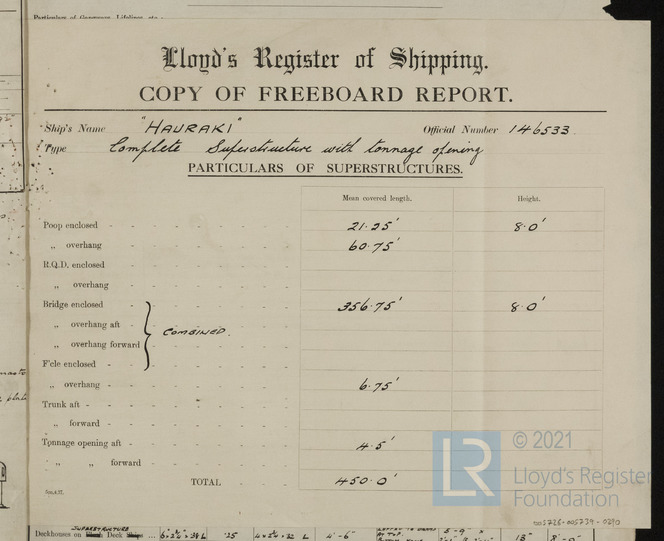 Particulars of Gangways, Lifelines, etc.
Lloyd's Register of Shipping.
COPY OF FREEBOARD REPORT.
Ship's Name "HAURAKI" Official Number 146533.
Type Complete Superstructure with tonnage opening
PARTICULARS OF SUPERSTRUCTURES.
Mean covered length. Height.
Poop enclosed 21.25' 8.0'
„ overhang 60.75'
R.Q.D. enclosed
„ overhang
Bridge enclosed 356.75' 8.0'
„ overhang aft
COMBINED.
„ overhang forward
F'cle enclosed
„ overhang 6.75'
Trunk aft
„ forward
Tonnage opening aft 4.5'
„ „ forward
TOTAL 450.0'
LR © 2021
Lloyd's Register
Foundation
005726-005734-0290
SUPERSTRUCTURE
Deckhouses on Deck 25 4'-6"